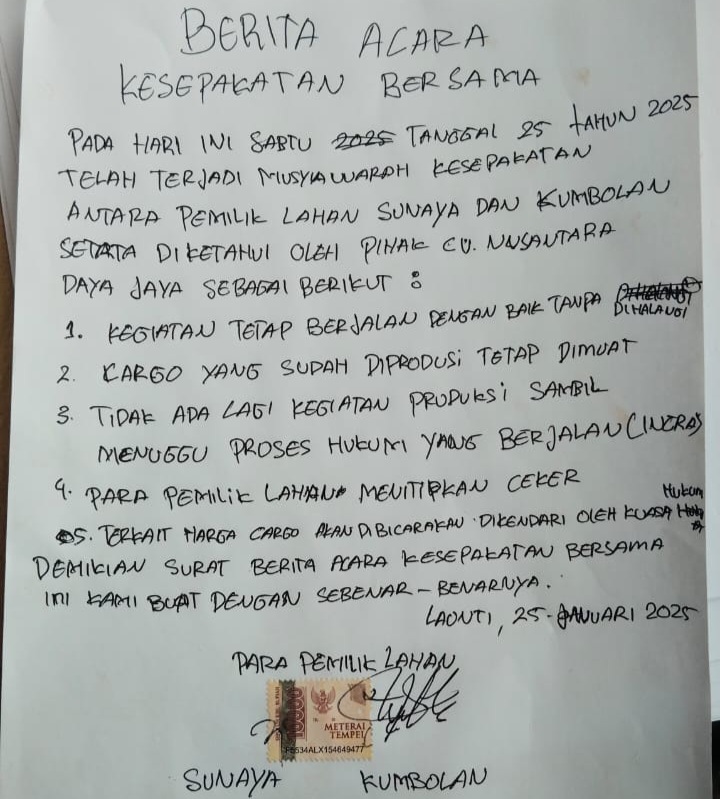 BERITA ACARA
KESEPAKATAN BERSAMA
PADA HARI INI SABTU 2025 TANGGAL 25 TAHUN 2025
TELAH TERJADI MUSYAWARAH KESEPAKATAN
ANTARA PEMILIK LAHAN SUNAYA DAN KUMBOLAN
SETATA DIKETAHUI OLEH PIHAK CV. NUSANTARA
DAYA JAYA SEBAGAI BERIKUT :
1. KEGIATAN TETAP BERJALAN DENGAN BAIK TANPA DIHALANGI
2. CARGO YANG SUDAH DIPRODUSI TETAP DIMUAT
3. TIDAK ADA LAGI KEGIATAN PRODUKSI SAMBIL
MENUGGU PROSES HUKUM YANG BERJALAN (INCRA)
4. PARA PEMILIK LAHAN MENITIPKAN CEKER
5. TERKAIT HARGA CARGO AKAN DIBICARAKAN DIKENDARI OLEH KUASA Hukum
DEMIKIAN SURAT BERITA ACARA KESEPAKATAN BERSAMA
INI KAMI BUAT DENGAN SEBENAR - BENARNYA.
LAONTI, 25 - JANUARI 2025
PARA PEMILIK LAHAN
10000
METERAI
TEMPEL
534ALX154649477
SUNAYA KUMBOLAN